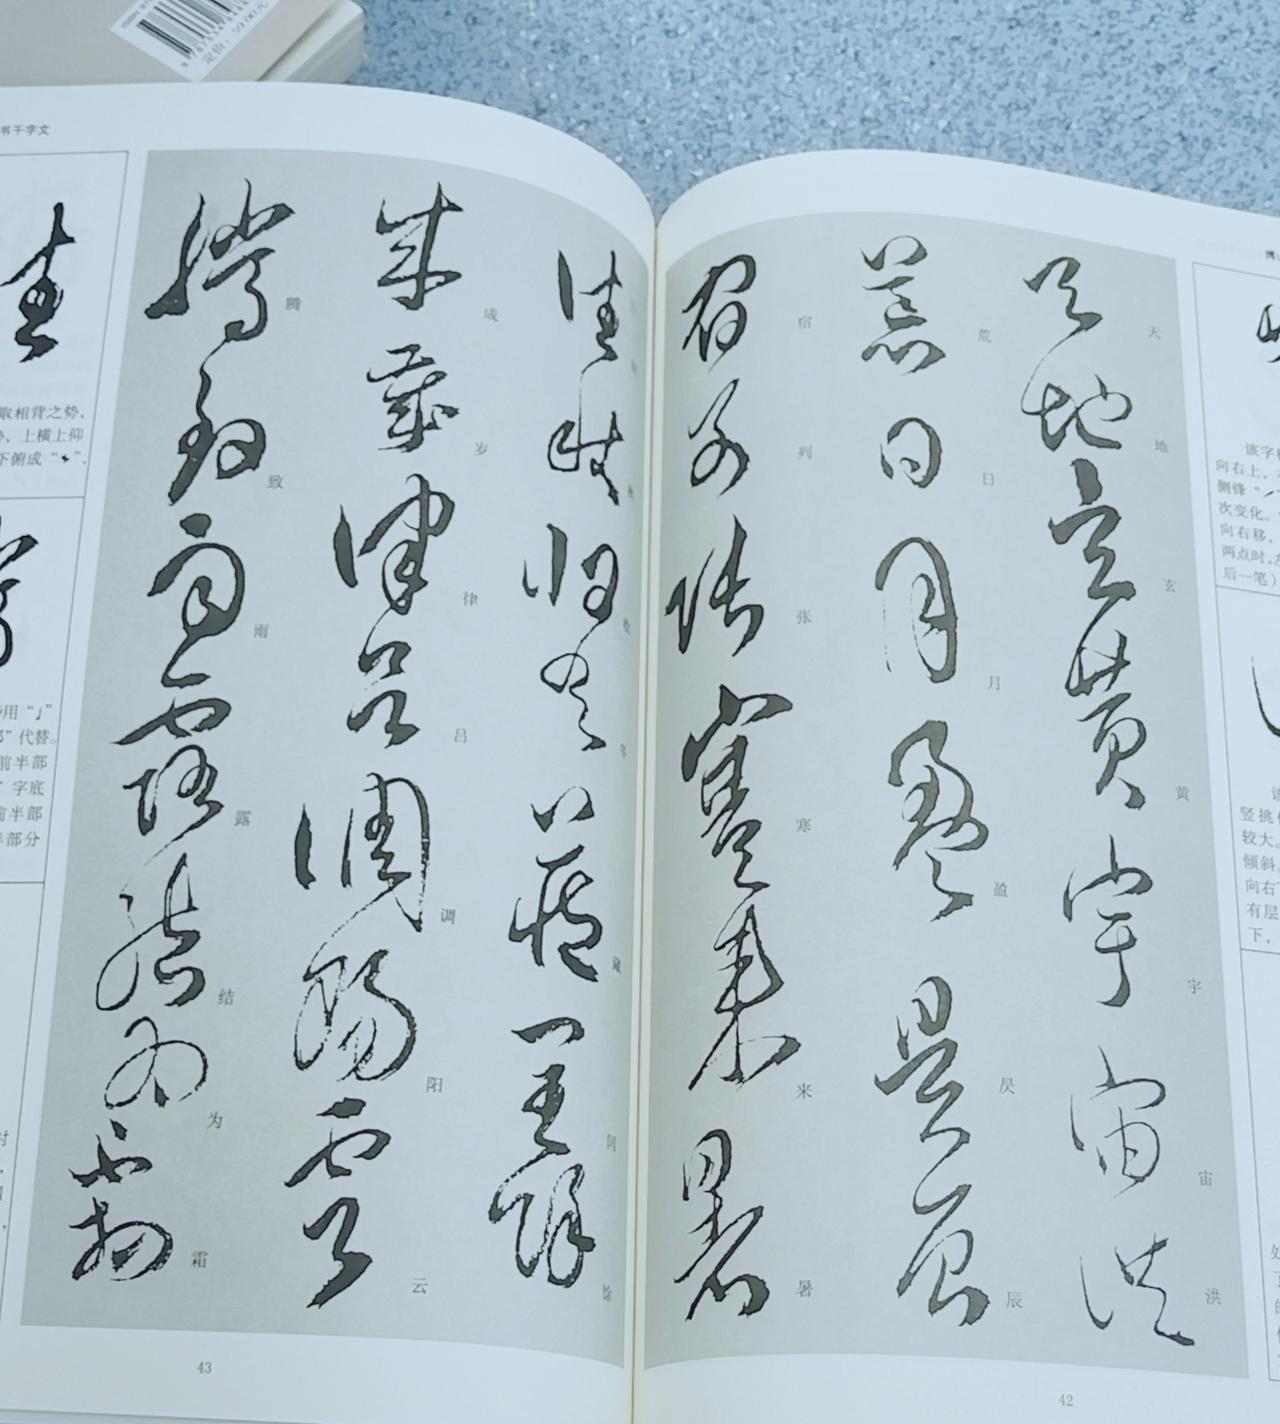 定价：59.00元
该字
向右上，
侧锋“
次变化。
向右移，
两点时，
后一笔）
竖挑
较大。
倾斜。
向右
有层
下，
天地玄黄宇宙洪
荒日月盈昃辰
宿列张寒来暑
42
往秋收冬藏闰馀
成岁律吕调阳云
腾致雨露结为霜
43
书千字文
取相背之势，
、上横上仰
下俯成“
用“亅”
”代替。
前半部
”字底
前半部
半部分